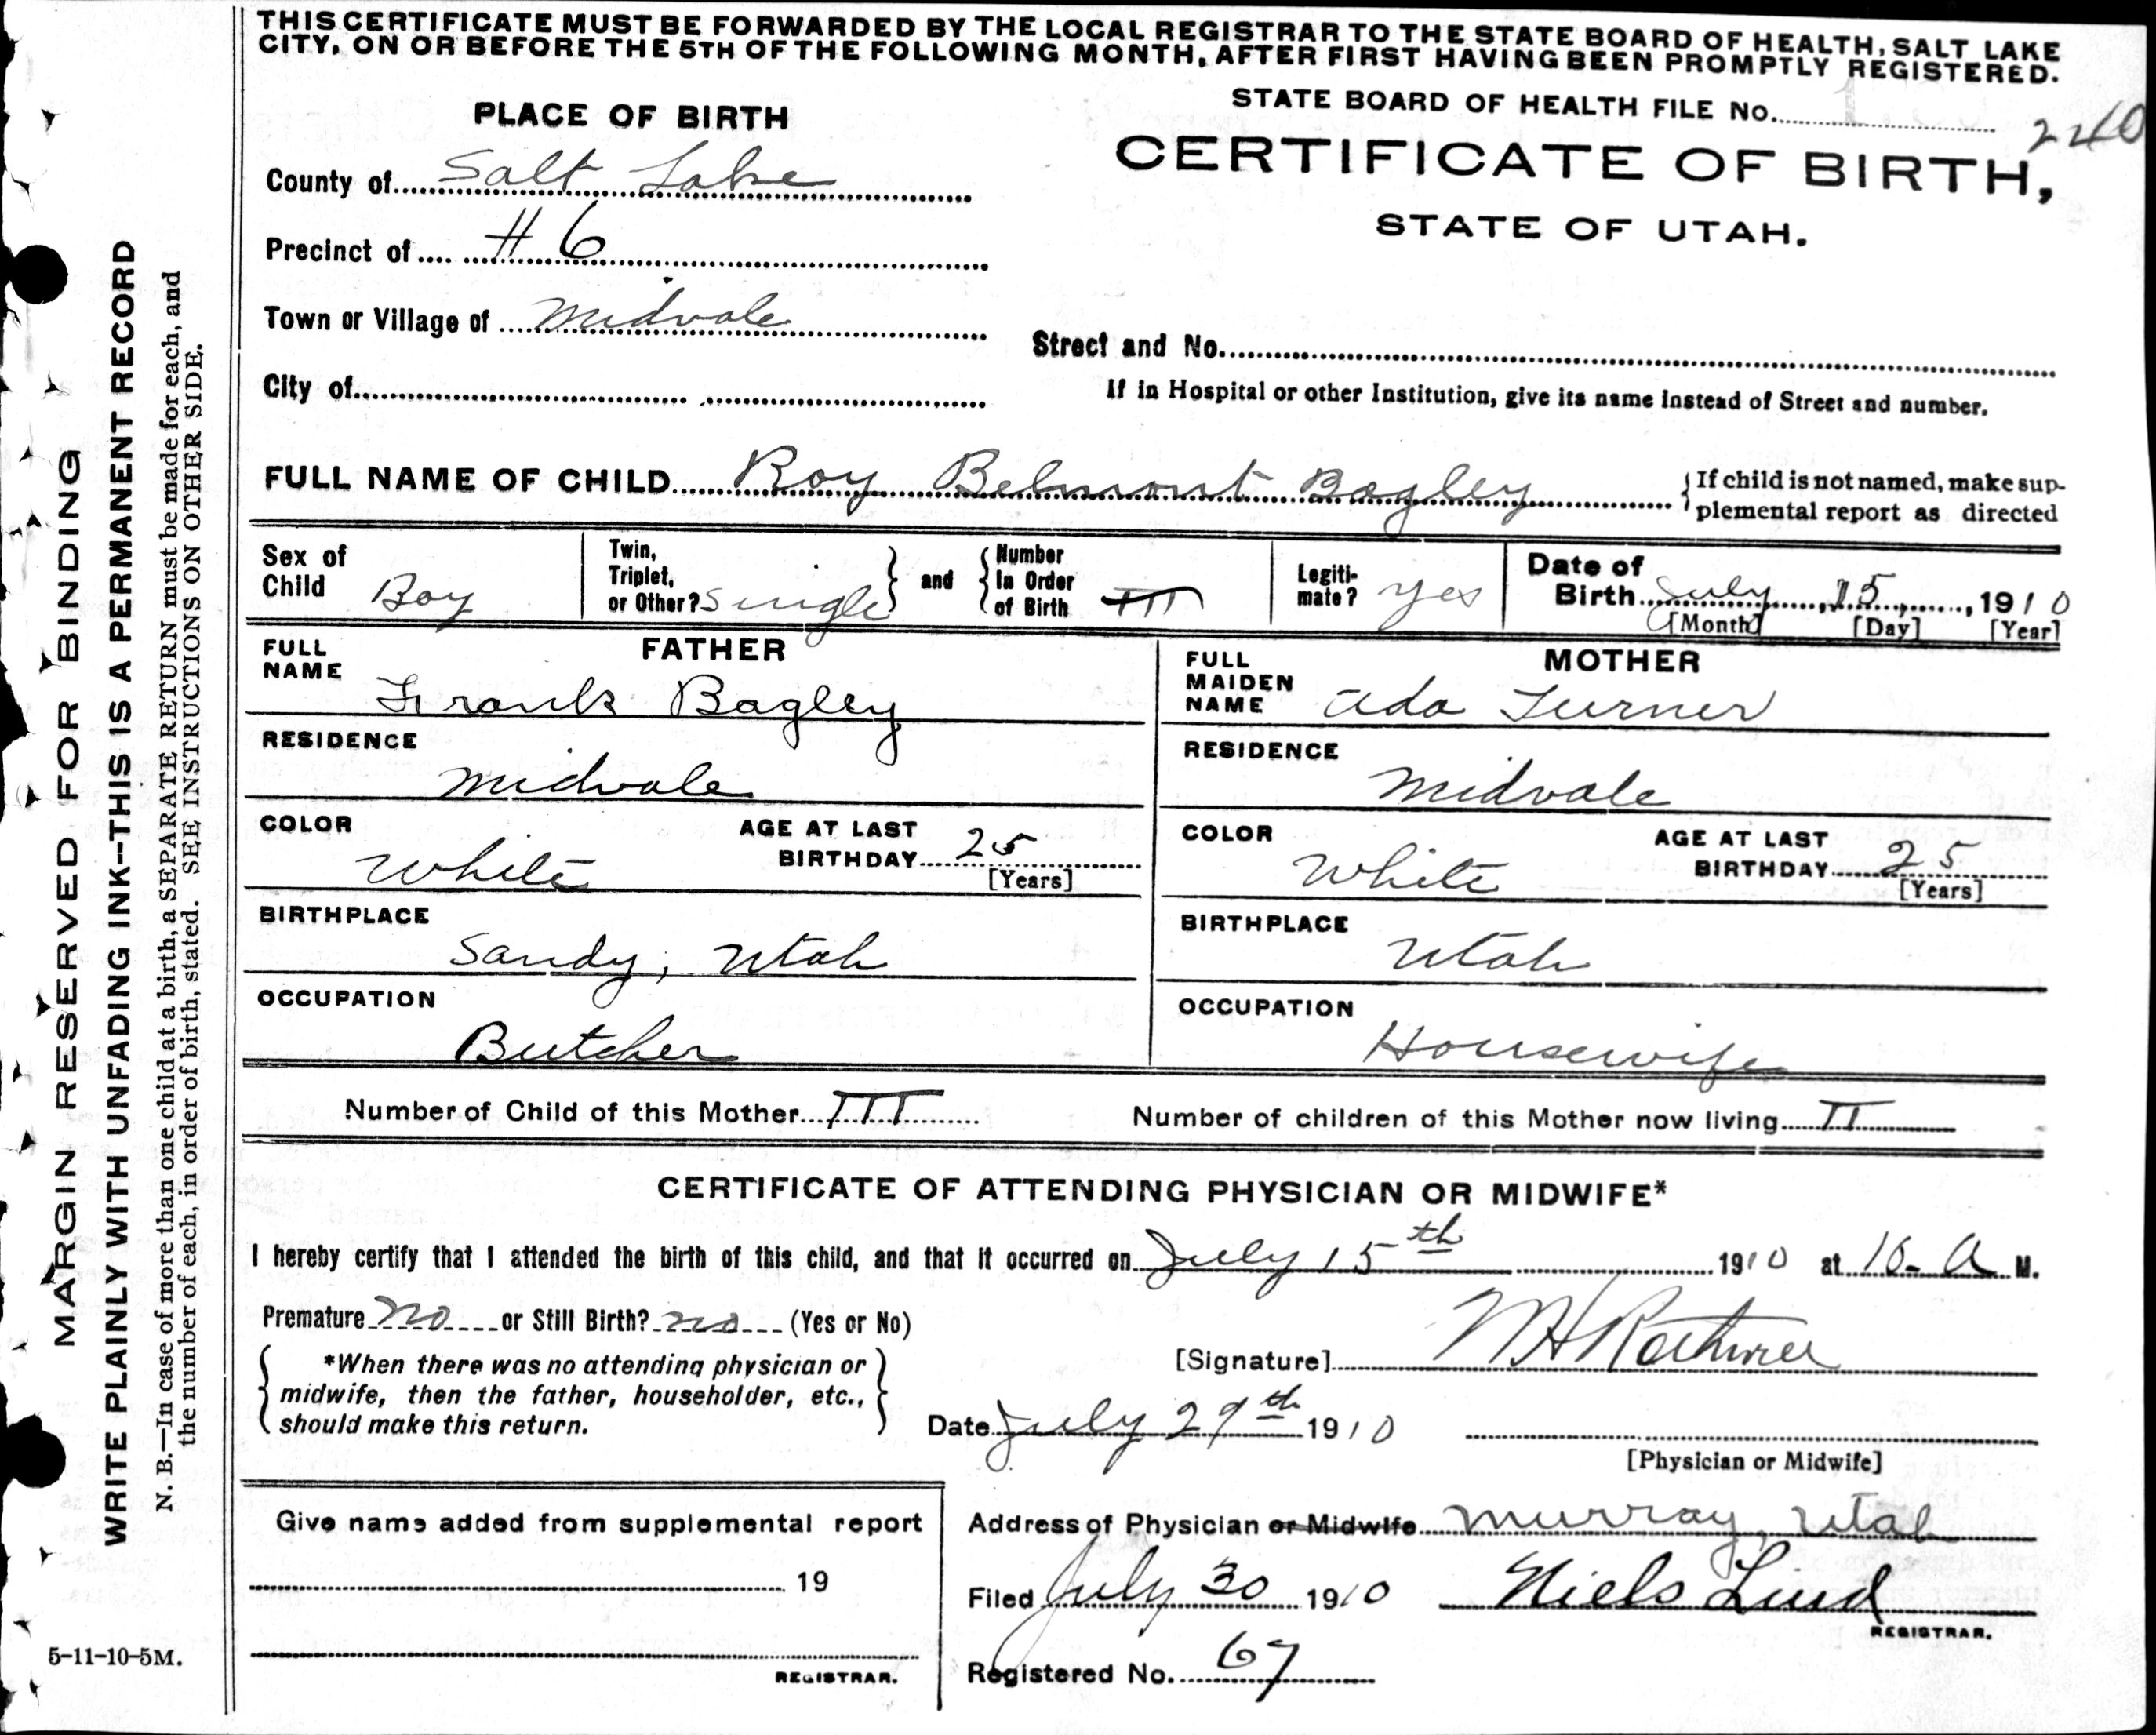 THIS CERTIFICATE MUST BE FORWARDED BY THE LOCAL REGISTRAR TO THE STATE BOARD OF HEALTH, SALT LAKE
CITY, ON OR BEFORE THE 5TH OF THE FOLLOWING MONTH, AFTER FIRST HAVING BEEN PROMPTLY REGISTERED.
STATE BOARD OF HEALTH FILE No. 240
PLACE OF BIRTH
CERTIFICATE OF BIRTH,
STATE OF UTAH.
County of Salt Lake
Precinct of #6
Town or Village of Midvale
Street and No.
City of
If in Hospital or other Institution, give its name instead of Street and number.
FULL NAME OF CHILD Roy Belmont Bagley
{If child is not named, make sup-
plemental report as directed
Sex of
Child Boy
Twin,
Triplet,
or Other? Single } and { Number
In Order
of Birth III
Legiti-
mate? Yes
Date of
Birth July, 15, 1910
[Month] [Day] [Year]
FATHER
FULL
NAME
Frank Bagley
RESIDENCE
Midvale
COLOR
White
AGE AT LAST
BIRTHDAY 25
[Years]
BIRTHPLACE
Sandy, Utah
OCCUPATION
Butcher
MOTHER
FULL
MAIDEN
NAME
Ada Turner
RESIDENCE
Midvale
COLOR
White
AGE AT LAST
BIRTHDAY 25
[Years]
BIRTHPLACE
Utah
OCCUPATION
Housewife
Number of Child of this Mother III
Number of children of this Mother now living II
CERTIFICATE OF ATTENDING PHYSICIAN OR MIDWIFE*
I hereby certify that I attended the birth of this child, and that it occurred on July 15th 1910 at 10- A M.
Premature no or Still Birth? no (Yes or No)
{ *When there was no attending physician or
midwife, then the father, householder, etc.,
should make this return. }
[Signature]
Date July 29th 1910
[Physician or Midwife]
Give name added from supplemental report
19
REGISTRAR.
Address of Physician or Midwife Murray, Utah
Filed July 30 1910 Niels Lind
REGISTRAR.
Registered No. 67
MARGIN RESERVED FOR BINDING
WRITE PLAINLY WITH UNFADING INK--THIS IS A PERMANENT RECORD
N. B.—In case of more than one child at a birth, a SEPARATE RETURN must be made for each, and
the number of each, in order of birth, stated. SEE INSTRUCTIONS ON OTHER SIDE.
5-11-10-5M.